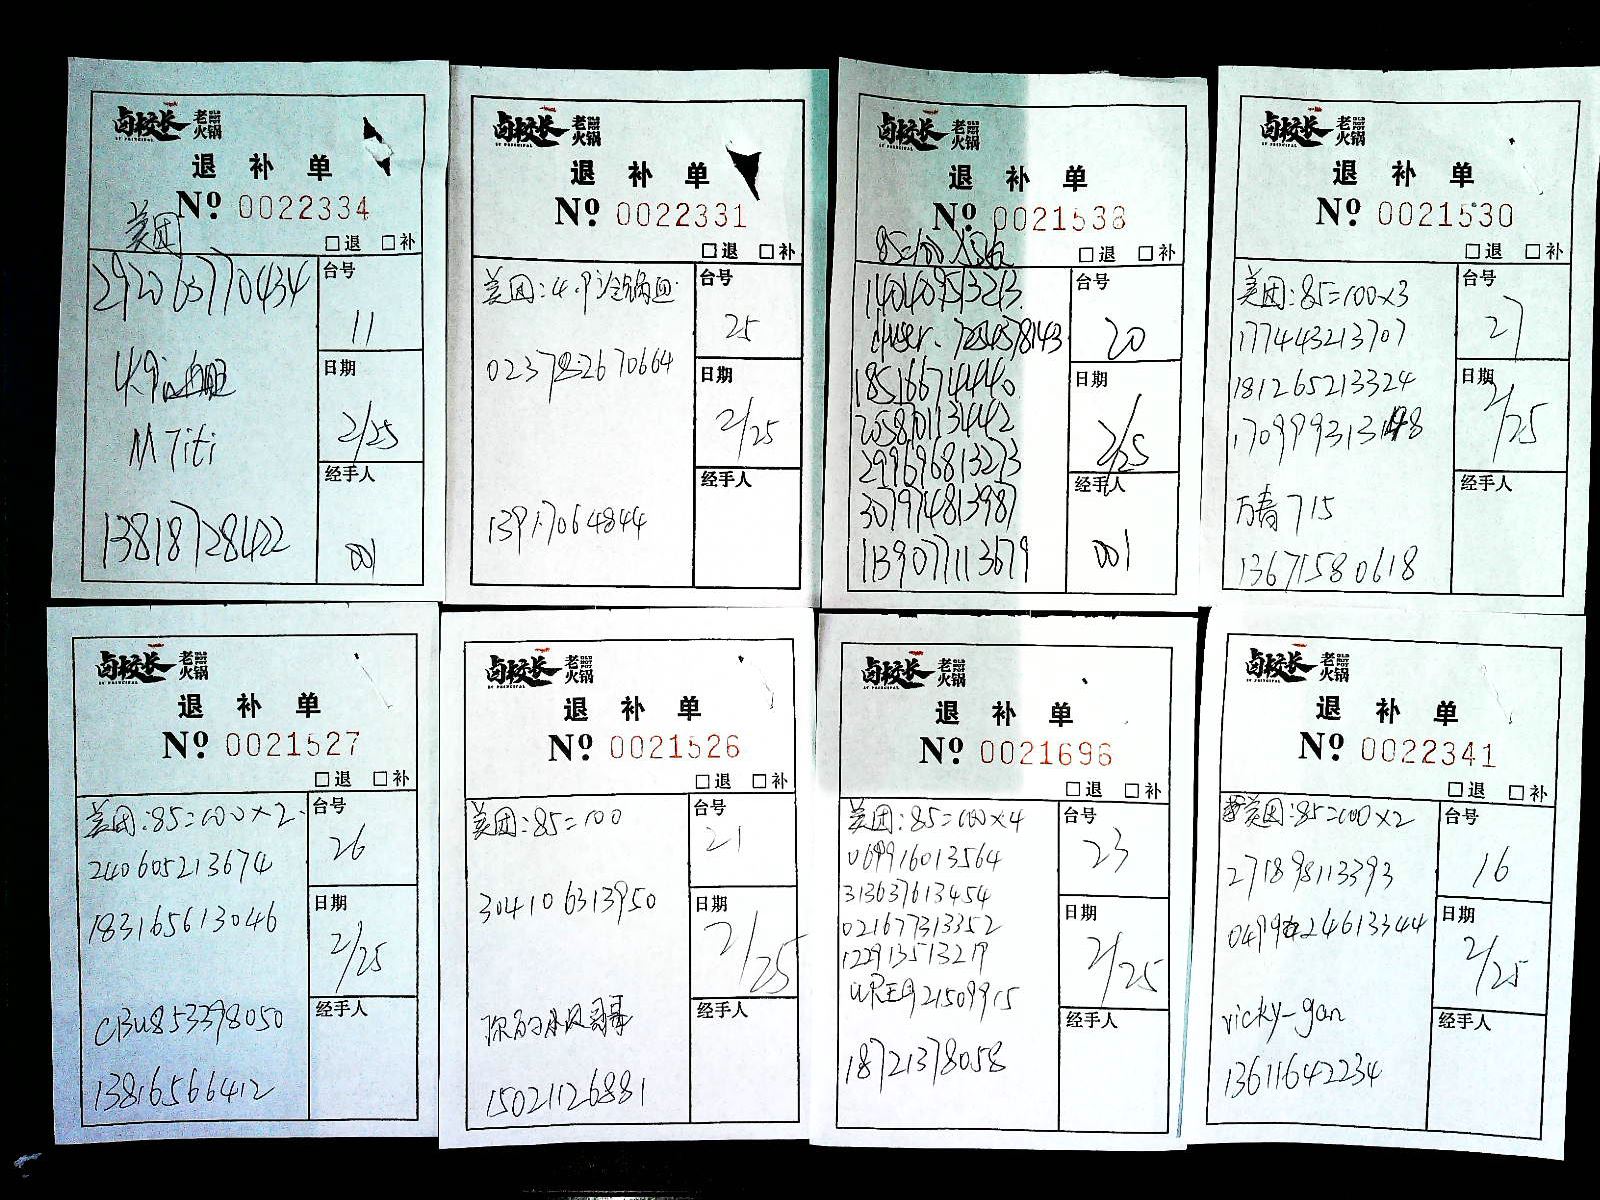 卤校长 老火锅 OLD HOT POT
LU PRINCIPAL
退 补 单
Nº 0022334
美团
□退 □补
2920637770434
台号
11
日期
2/25
M Titi
经手人
13818728422
001
卤校长 老火锅 OLD HOT POT
LU PRINCIPAL
退 补 单
Nº 0022331
□退 □补
美团:4.9冷锅
台号
25
023782670664
日期
2/25
经手人
13917064844
卤校长 老火锅 OLD HOT POT
LU PRINCIPAL
退 补 单
Nº 0021538
85=100
□退 □补
140409513213
台号
20
185166714440
日期
205870113442
2/25
299696813213
经手人
307974813987
113907113679
001
卤校长 老火锅 OLD HOT POT
LU PRINCIPAL
退 补 单
Nº 0021530
□退 □补
美团:85=100×3
台号
27
177443213707
181265213324
日期
2/25
170999313148
经手人
万春715
13671580618
卤校长 老火锅 OLD HOT POT
LU PRINCIPAL
退 补 单
Nº 0021527
□退 □补
美团:85=100×2
台号
26
240605213674
日期
183165613046
2/25
经手人
CBU853398050
13816566412
卤校长 老火锅 OLD HOT POT
LU PRINCIPAL
退 补 单
Nº 0021526
□退 □补
美团:85=100
台号
21
304106313950
日期
2/25
经手人
15021126881
卤校长 老火锅 OLD HOT POT
LU PRINCIPAL
退 补 单
Nº 0021696
□退 □补
美团:85=100×4
台号
23
069916013564
313637613454
日期
021677313352
2/25
122913513217
经手人
18721378058
卤校长 老火锅 OLD HOT POT
LU PRINCIPAL
退 补 单
Nº 0022341
□退 □补
美团:85=100×2
台号
16
271898113393
日期
2/25
vicky-gan
经手人
13611642234